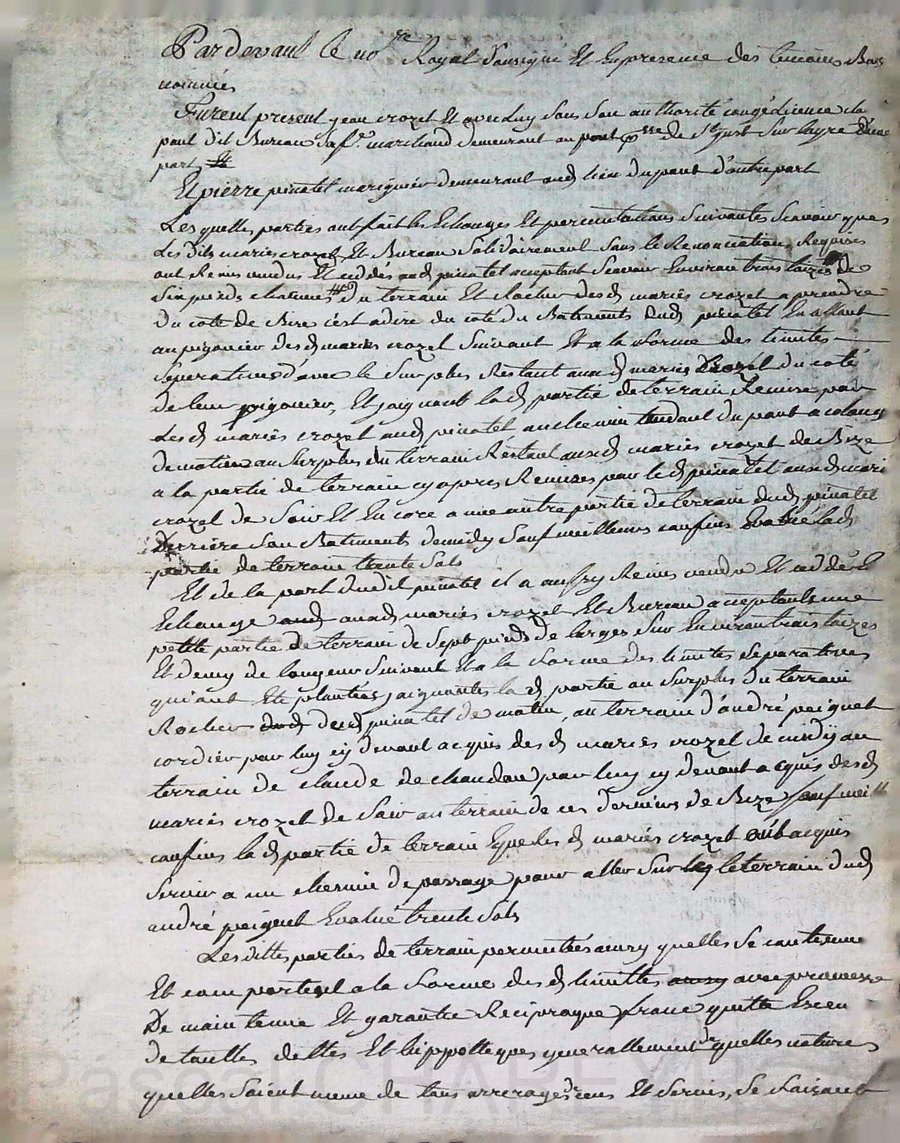 Pardevant le nore Royal Soussigné Et Enpresence des temoins Bas
nommés
Furent present jean crozet Et avec luy Sous Son authorité congédience cla
pont dit Bureau Sa fe marchand demeurant au pont psse de St just Sur loyre d'une
part Et
Et pierre pinatel marignier demeurant audt lieu du pont d'autre part
Les quelles parties ont fait les Echanges Et permutations Suivantes Scavoir que
Les dits mariés crozet Et Bureau Solidairement Sous le Renonciation Requises
ont Remis vendus Et ceddés audt pinatel acceptant Scavoir Environ trois toizes de
Six pieds chacunes du terrain Et Rocher desdt mariés crozet a prendre
du coté de Bize c'est adire du coté du Batiments dudt pinatel En allant
au pigonier desdt mariés crozet Suivant Et a la forme des limites
Separatives d'avec le Surplus Restant auxdt mariés crozet du coté
de leur pigonier, Et joignant ladt partie de terrain Remise par
Lesdt mariés crozet audt pinatel au chemin tendant du pont a
de matin au Surplus du terrain Restant auxdt mariés crozet de Bize
a la partie de terrain cy apres Remises par ledt pinatel auxdt mari
crozet de Soir Et Encore a une autre partie de terrain dudt pinatel
Derriere Son Batiments de midy Sauf meilleurs confins Evalué ladt
partie de terrain trente Sols
Et de la part dudit pinatel il a aussy Remis vendu Et ceddé En
Echange auxdt mariés crozet Et Bureau acceptants une
petite partie de terrain de Sept pieds de larges Sur Environ trois toizes
Et demy de longeur Suivant Et a la forme des limites Separatives
qui ont Ete plantées joignantes ladt partie au Surplus du terrain
Rocher dudt pinatel de matin, au terrain d'andré peignet
cordier par luy cy devant acquis desdt mariés crozet de midy au
terrain de claude de chandon par luy cy devant acquis desdt
mariés crozet de Soir au terrain de ces derniers de Bize Sauf meills
confins ladt partie de terrain Que lesdt mariés crozet ont acquis
Servir a un chemin de passage pour aller Sur le terrain dudt
andré peignet Evalué trente Sols
Les dittes parties de terrain permutées ainsy quelles Se contienne
Et comportent a la forme desdt limittes avec promesse
De maintenue Et garantie Reciproque franc quitte Exceu
de touttes dettes Et hippotteques generallement de quelles natures
quelles Soient meme de tous arrerages de cens Et Servis, Se faisant